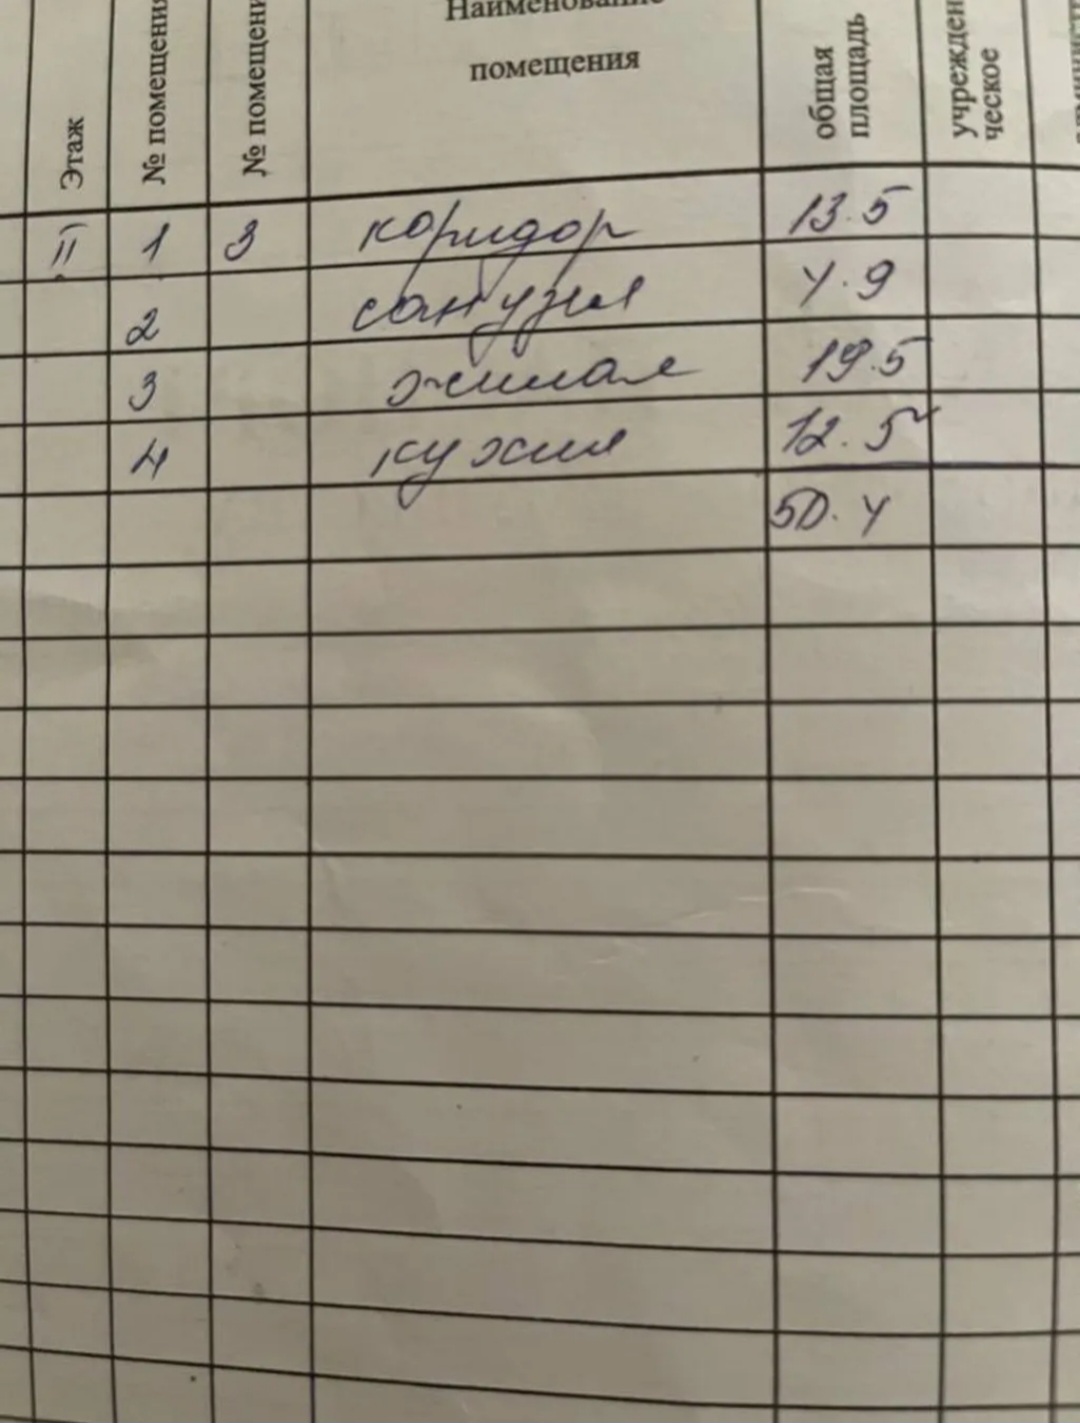 Наименование
помещения
Этаж
№ помещения
№ помещени
общая
площадь
учрежден
ческое
II 1 3 коридор 13.5
2 санузел 4.9
3 жилая 19.5
4 кухня 12.5
50.4